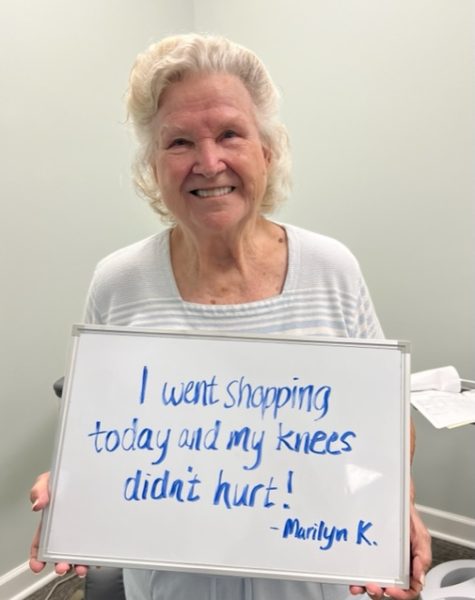 I went shopping
today and my knees
didn't hurt!
- Marilyn K.